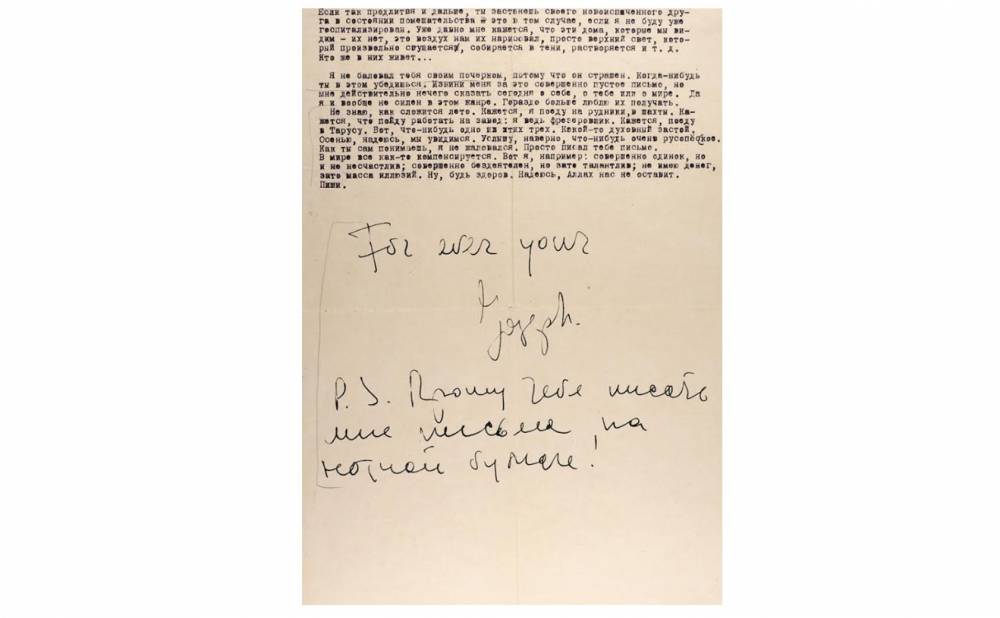 Если так продлится и дальше, ты застанешь своего новоиспеченного дру-
га в состоянии помешательства - это в том случае, если я не буду уже
госпитализирован. Уже давно мне кажется, что эти дома, которые мы ви-
дим - их нет, это воздух нам их нарисовал, просто верхний свет, кото-
рый произвольно сгущается, собирается в тени, растворяется и т. д.
Кто же в них живет...
Я не баловал тебя своим почерком, потому что он страшен. Когда-нибудь
ты в этом убедишься. Извини меня за это совершенно пустое письмо, но
мне действительно нечего сказать сегодня о себе, о тебе или о мире. Да
я и вообще не силен в этом жанре. Гораздо больше люблю их получать.
Не знаю, как сложится лето. Кажется, я поеду на рудники, в шахты. Ка-
жется, что пойду работать на завод: я ведь фрезеровщик. Кажется, поеду
в Тарусу. Вот, что-нибудь одно из этих трех. Какой-то духовный застой.
Осенью, надеюсь, мы увидимся. Услышу, наверно, что-нибудь очень русопёское.
Как ты сам понимаешь, я не жаловался. Просто писал тебе письмо.
В мире все как-то компенсируется. Вот я, например: совершенно одинок, но
и не несчастлив; совершенно бездеятелен, но зато талантлив; не имею денег,
зато масса иллюзий. Ну, будь здоров. Надеюсь, Аллах нас не оставит.
Пиши.
For ever your
Joseph.
P.S. Прошу тебя писать
мне письма на
нотной бумаге!